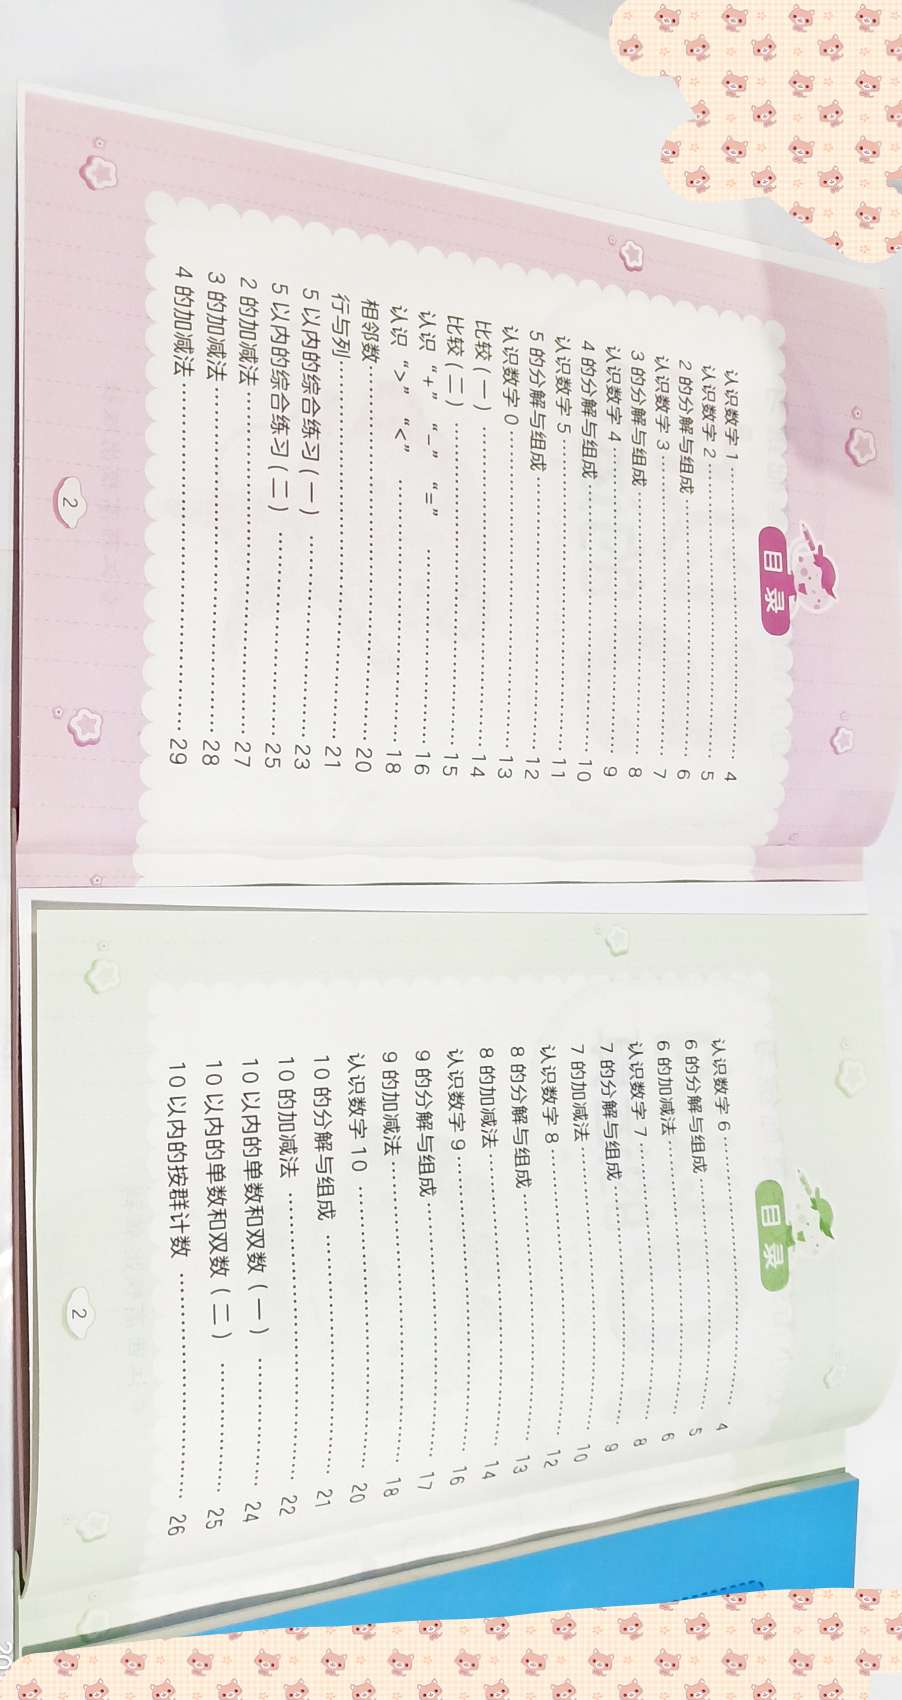 目录
认识数字 1 4
认识数字 2 5
2 的分解与组成 6
认识数字 3 7
3 的分解与组成 8
认识数字 4 9
4 的分解与组成 10
认识数字 5 11
5 的分解与组成 12
认识数字 0 13
比较 (一) 14
比较 (二) 15
认识 “+” “-” “=” 16
认识 “>” “<” 18
相邻数 20
行与列 21
5 以内的综合练习 (一) 23
5 以内的综合练习 (二) 25
2 的加减法 27
3 的加减法 28
4 的加减法 29
2
目录
认识数字 6 4
6 的分解与组成 5
6 的加减法 6
认识数字 7 8
7 的分解与组成 9
7 的加减法 10
认识数字 8 12
8 的分解与组成 13
8 的加减法 14
认识数字 9 16
9 的分解与组成 17
9 的加减法 18
认识数字 10 20
10 的分解与组成 21
10 的加减法 22
10 以内的单数和双数 (一) 24
10 以内的单数和双数 (二) 25
10 以内的按群计数 26
2